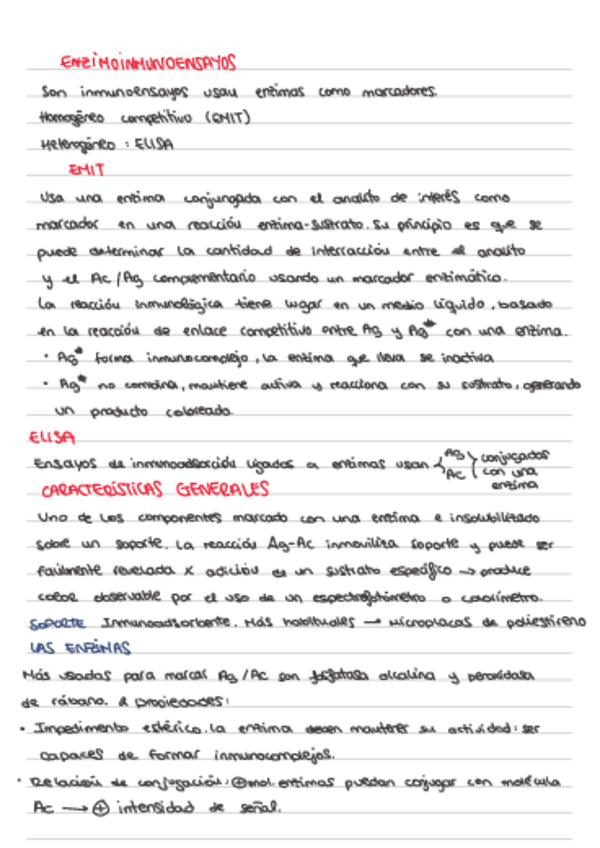 ENZIMOINMUNOENSAYOS
Son inmunoensayos usau enzimas como marcadores.
Homogéneo competitivo (EMIT)
Heterogéneo : ELISA
EMIT
Usa una enzima conjungada con el analito de interés como
marcador en una reacción enzima-sustrato. Su principio es que se
puede determinar la cantidad de interracción entre el analito
y el Ac/Ag complementario usando un marcador enzimático.
La reacción inmunológica tiene lugar en un medio líquido, basado
en la reacción de enlace competitivo entre Ag y Ag* con una enzima.
· Ag* forma inmunocomplejo, la enzima que lleva se inactiva
· Ag* no combina, mantiene activa y reacciona con su sustrato, generando
un producto coloreado.
ELISA
Ensayos de inmunoadsorción ligados a enzimas usan { Ag Ac } conjugados con una enzima
CARACTERÍSTICAS GENERALES
Uno de los componentes marcado con una enzima e insolubilizado
sobre un soporte. La reacción Ag-Ac inmoviliza soporte y puede ser
facilmente revelada x adición de un sustrato específico → produce
color observable por el uso de un espectrofotómetro o colorímetro.
SOPORTE Inmunoadsorbente. Más habituales → Microplacas de poliestireno
LAS ENZIMAS
Más usadas para marcar Ag/Ac son fosfatasa alcalina y peroxidasa
de rábano. 2 propiedades:
· Impedimento estérico. La enzima deben mantener su actividad: ser
capaces de formar inmunocomplejos.
· Relación de conjugación: ⊕ mol. enzimas puedan conjugar con molécula
Ac → ⊕ intensidad de señal.